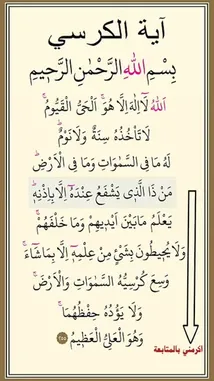 آية الكرسي
بِسْمِ اللهِ الرَّحْمٰنِ الرَّحِيمِ
اَللهُ لَا اِلٰهَ اِلَّا هُوَ ۚ اَلْحَيُّ الْقَيُّومُ ۚ
لَا تَأْخُذُهُ سِنَةٌ وَلَا نَوْمٌ ۜ
لَهُ مَا فِي السَّمٰوَاتِ وَمَا فِي الْاَرْضِ ۜ
مَنْ ذَا الَّذٖي يَشْفَعُ عِنْدَهُٓ اِلَّا بِاِذْنِهٖ ۜ
يَعْلَمُ مَا بَيْنَ اَيْدٖيهِمْ وَمَا خَلْفَهُمْ ۚ
وَلَا يُحٖيطُونَ بِشَيْءٍ مِنْ عِلْمِهٖٓ اِلَّا بِمَا شَٓاءَ ۚ
وَسِعَ كُرْسِيُّهُ السَّمٰوَاتِ وَالْاَرْضَ ۚ
وَلَا يَؤُدُهُ حِفْظُهُمَا ۚ
وَهُوَ الْعَلِيُّ الْعَظٖيمُ ٢٥٥
اكرمني بالمتابعة